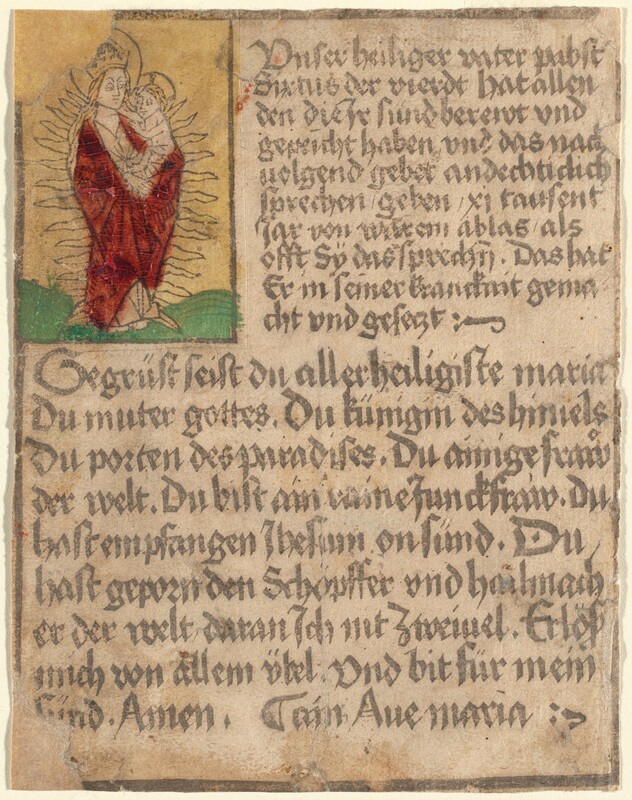 Vnser heiliger vater pabst
Sixtus der vierdt hat allen
den die Jr sund berewt vnd
gepeicht haben vnd das nach
uelgend gebet andechticlich
sprechen / geben / xi tausent
Jar von warem ablas / als
offt Sy das sprechn . Das hat
Er in seiner kranckait gema
cht vnd gesetzt :~
Gegrüst seist du allerheiligiste maria
Du muter gottes . Du künigin des himels
Du porten des paradises . Du ainige fraw
der welt . Du bist ain raine Junckfraw . Du
hast empfangen Jhesum on sünd . Du
hast geporn den Schöpffer vnd hailmach
er der welt daran Ich nit Zweiuel . Erlöß
mich von allem übel . Vnd bit für mein
Sünd . Amen . Cain Aue maria :~